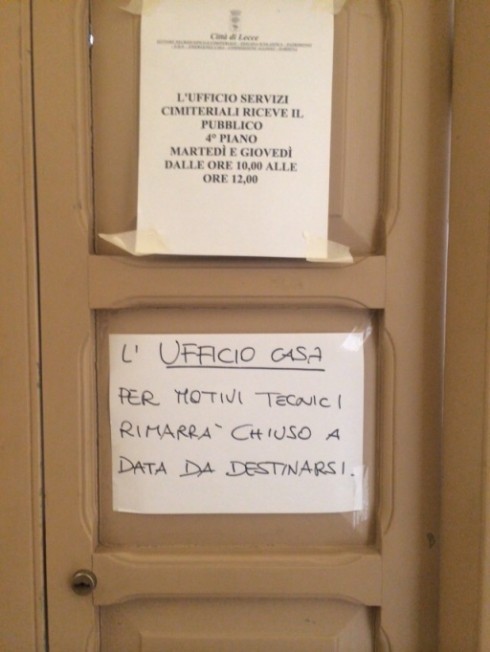 Città di Lecce
L'UFFICIO SERVIZI
CIMITERIALI RICEVE IL
PUBBLICO
4° PIANO
MARTEDÌ E GIOVEDÌ
DALLE ORE 10,00 ALLE
ORE 12,00
L' UFFICIO CASA
PER MOTIVI TECNICI
RIMARRA' CHIUSO A
DATA DA DESTINARSI.